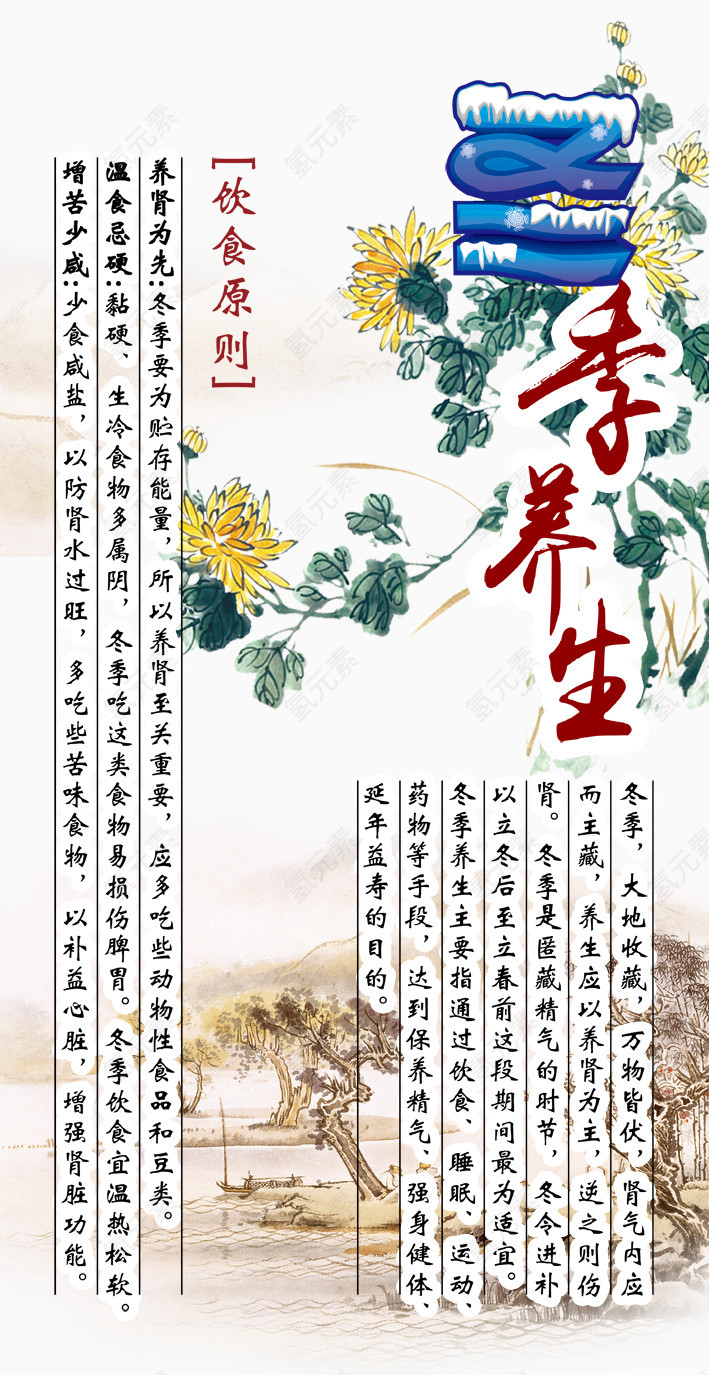 冬季养生
冬季，大地收藏，万物皆伏，肾气内应
而主藏，养生应以养肾为主，逆之则伤
肾。冬季是匿藏精气的时节，冬令进补
以立冬后至立春前这段期间最为适宜。
冬季养生主要指通过饮食、睡眠、运动、
药物等手段，达到保养精气、强身健体、
延年益寿的目的。
[饮食原则]
养肾为先:冬季要为贮存能量，所以养肾至关重要，应多吃些动物性食品和豆类。
温食忌硬:黏硬、生冷食物多属阴，冬季吃这类食物易损伤脾胃。冬季饮食宜温热松软。
增苦少咸:少食咸盐，以防肾水过旺，多吃些苦味食物，以补益心脏，增强肾脏功能。
氢元素